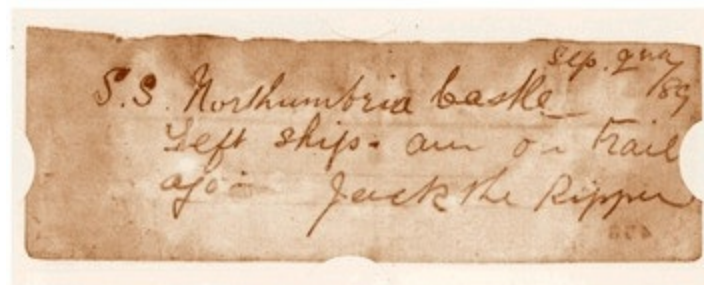 Sep. 9th/89
S.S. Northumbria Castle
Left ship. am on trail
ago- Jack the Ripper